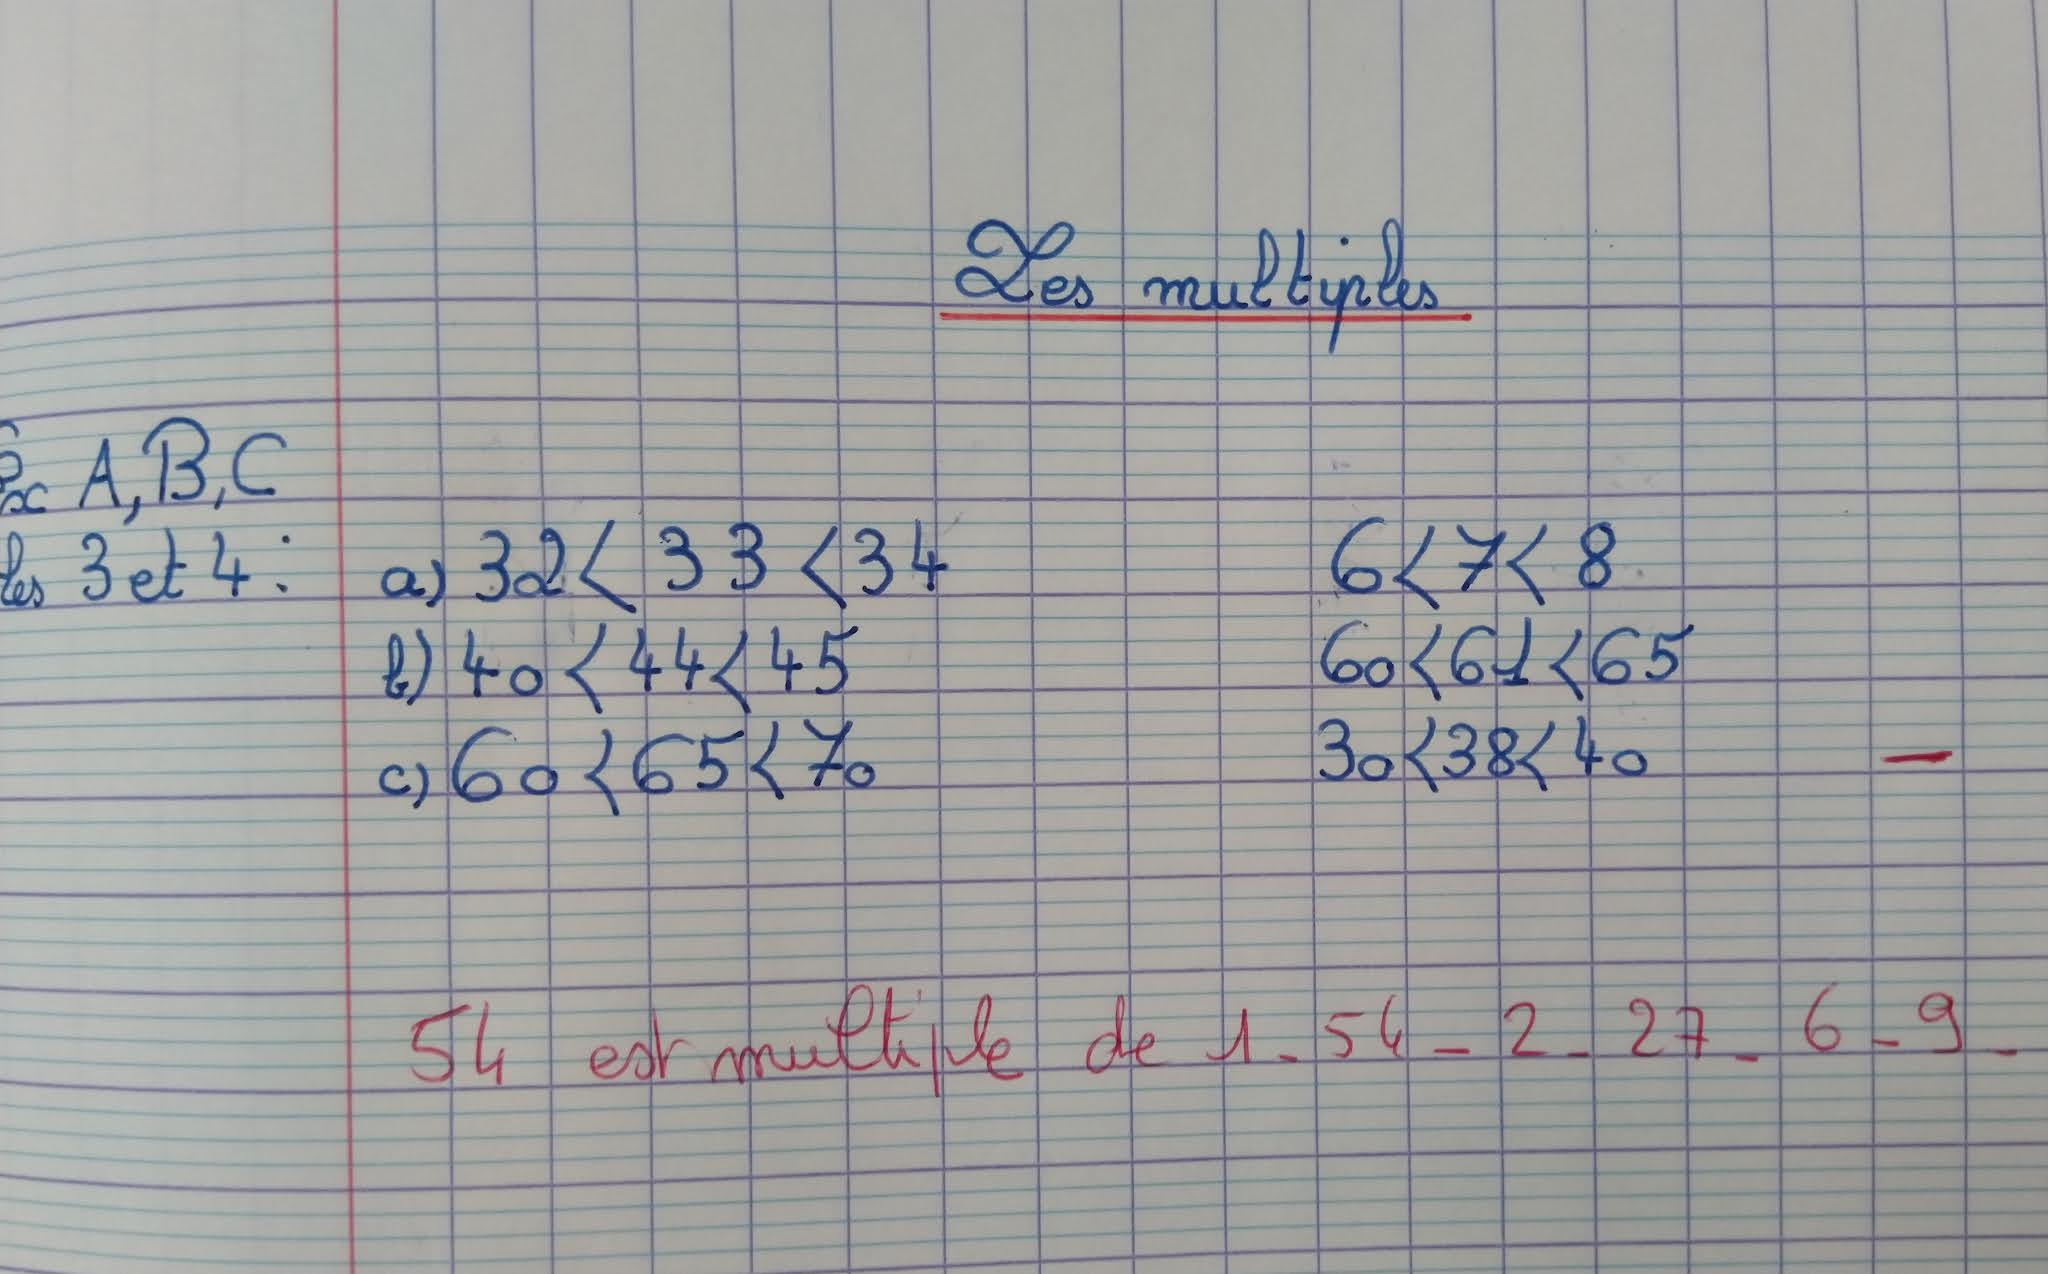 Les multiples
Ex A, B, C
les 3 et 4 :
a) 32 < 33 < 34 6 < 7 < 8
b) 40 < 44 < 45 60 < 61 < 65
c) 60 < 65 < 70 30 < 38 < 40 —
54 est multiple de 1 - 54 - 2 - 27 - 6 - 9 -